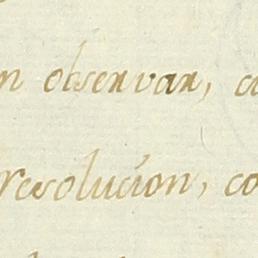 n observar, c
resolucion, co